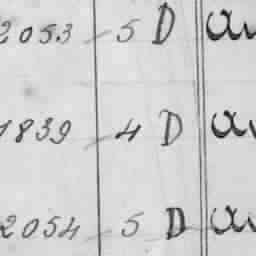 2053 5 D
1839 4 D
2054 5 D